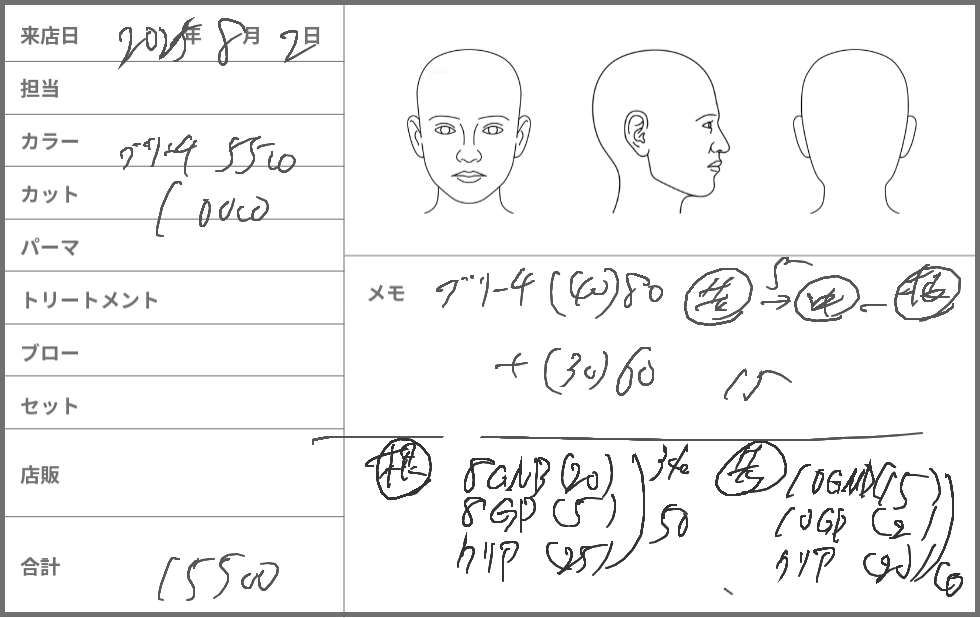 来店日 2025年 8月 2日
担当
カラー ブリーチ 5500
カット 10000
パーマ
トリートメント
ブロー
セット
店販
合計 15500
メモ ブリーチ (40) 80 毛 5 → 中 - 根
+ (30) 60 15
根 8GNB (20) 3%
8GP (5) 50
クリア (25)
毛 10GNB (15)
10GP (2)
クリア (20)